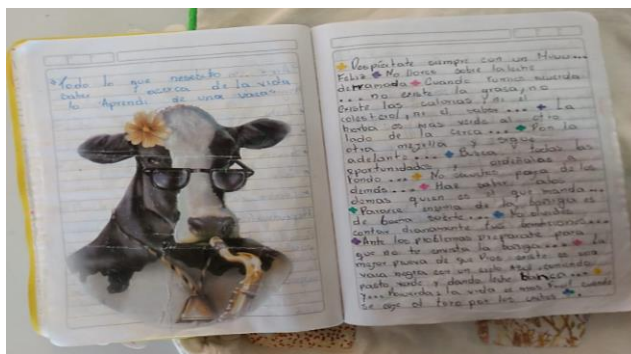 Todo lo que necesito
saber acerca de la vida
lo Aprendí de una vaca
Despiértate siempre con un Muuu...
Feliz No llores sobre la leche
derramada Cuando rumies recuerda
... no existe la grasa, no
existe las calorias, ni el
colesterol, ni el sabor... La
hierba es mas verde al otro
lado de la cerca... Pon la
otra mejilla y sigue
adelante... Busca todas las
oportunidades, y ordéñalas a
fondo... No seas de los
demás... Haz saber a los
demas quien es la que manda...
Pararse encima de la boñiga es
de buena suerte... No olvides
contar diariamente tus bendiciones...
Ante los problemas preparate para
que no te envista la
mejor prueba de que Dios existe es una
vaca negra con un cielo Azul comiendo
pasto verde y dando leche blanca...
Y... Recuerda: la vida es mas Facil cuando
se coje el toro por los cachos.